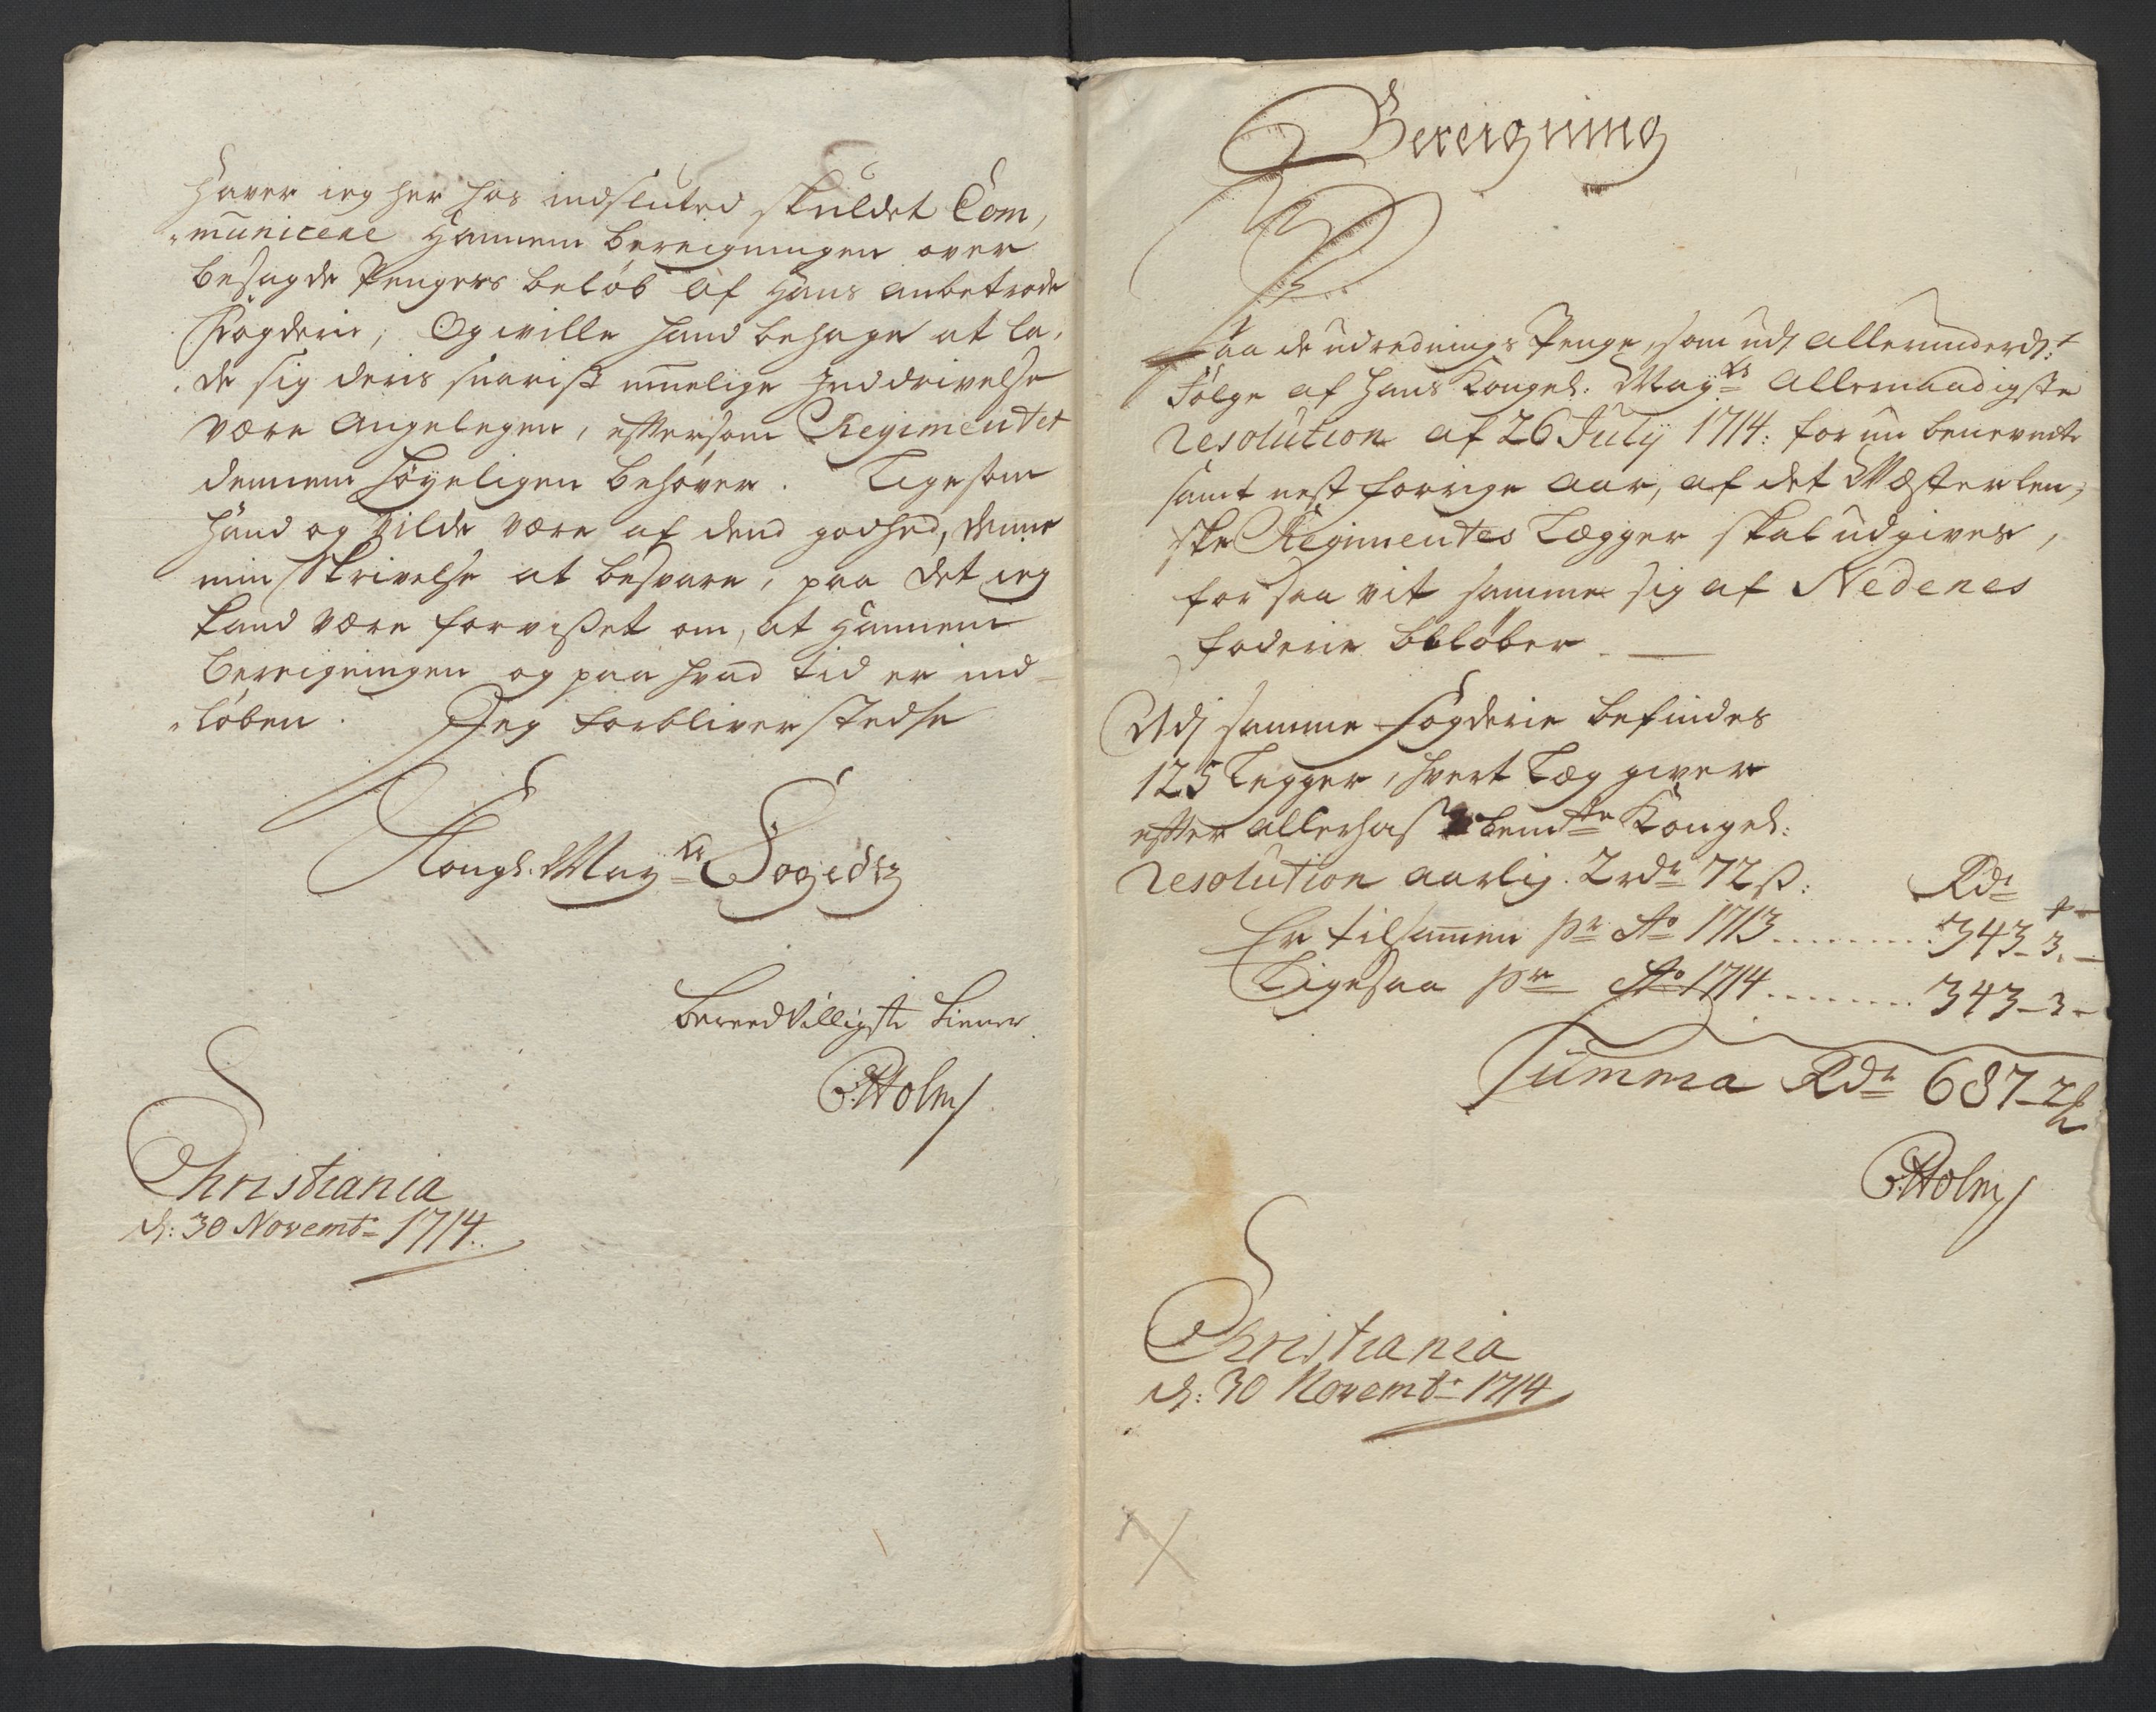 Haver ieg her hos indsluted skuldet Com,
"municere Hannem bereigningen over
besagde Pengers beløb af Hans anbetroede
Fogderie, Og wille hand behage at la,
"de sig deris snarist muelige Inddrivelse
være angelegen, eftersom Regimentet
dennem høyeligen behøver. Ligesom
hand og vilde være af dend godhed, denne
min Skrivelse at besvare, paa det ieg
kand være forvißet om, at Hannem
bereigningen og paa hvad tid er ind=
"løben. Jeg forbliver stedse
Kongl. May.ts Foged
beredvilligste tiener
Holm
Christiania
d: 30 Novembr 1714.
Bereigning
Paa de udrednings Penge, som udj allerunderd:t
Følge af Hans Kongel: May.ts Allernaadigste
resolution af 26 July 1714: for nu benevnte
samt nest forrige aar, af det Westerlen,
ske Regimentes Lægger skal udgives,
for saa vit samme sig af Nedenes
foderie beløber
Udj samme fogderie befindes
125 Legger, hvert Læg giver
efter allerhøst bemte Kongel:
resolution aarlig 2 rdr 72 ß: Rdr
Er tilsamen pr Ao 1713 ......... 343_3._
Ligesaa pr Ao 1714 ........ 343_3_
Summa Rdr 687_2
Holm
Christiania
d: 30 Novembr 1714